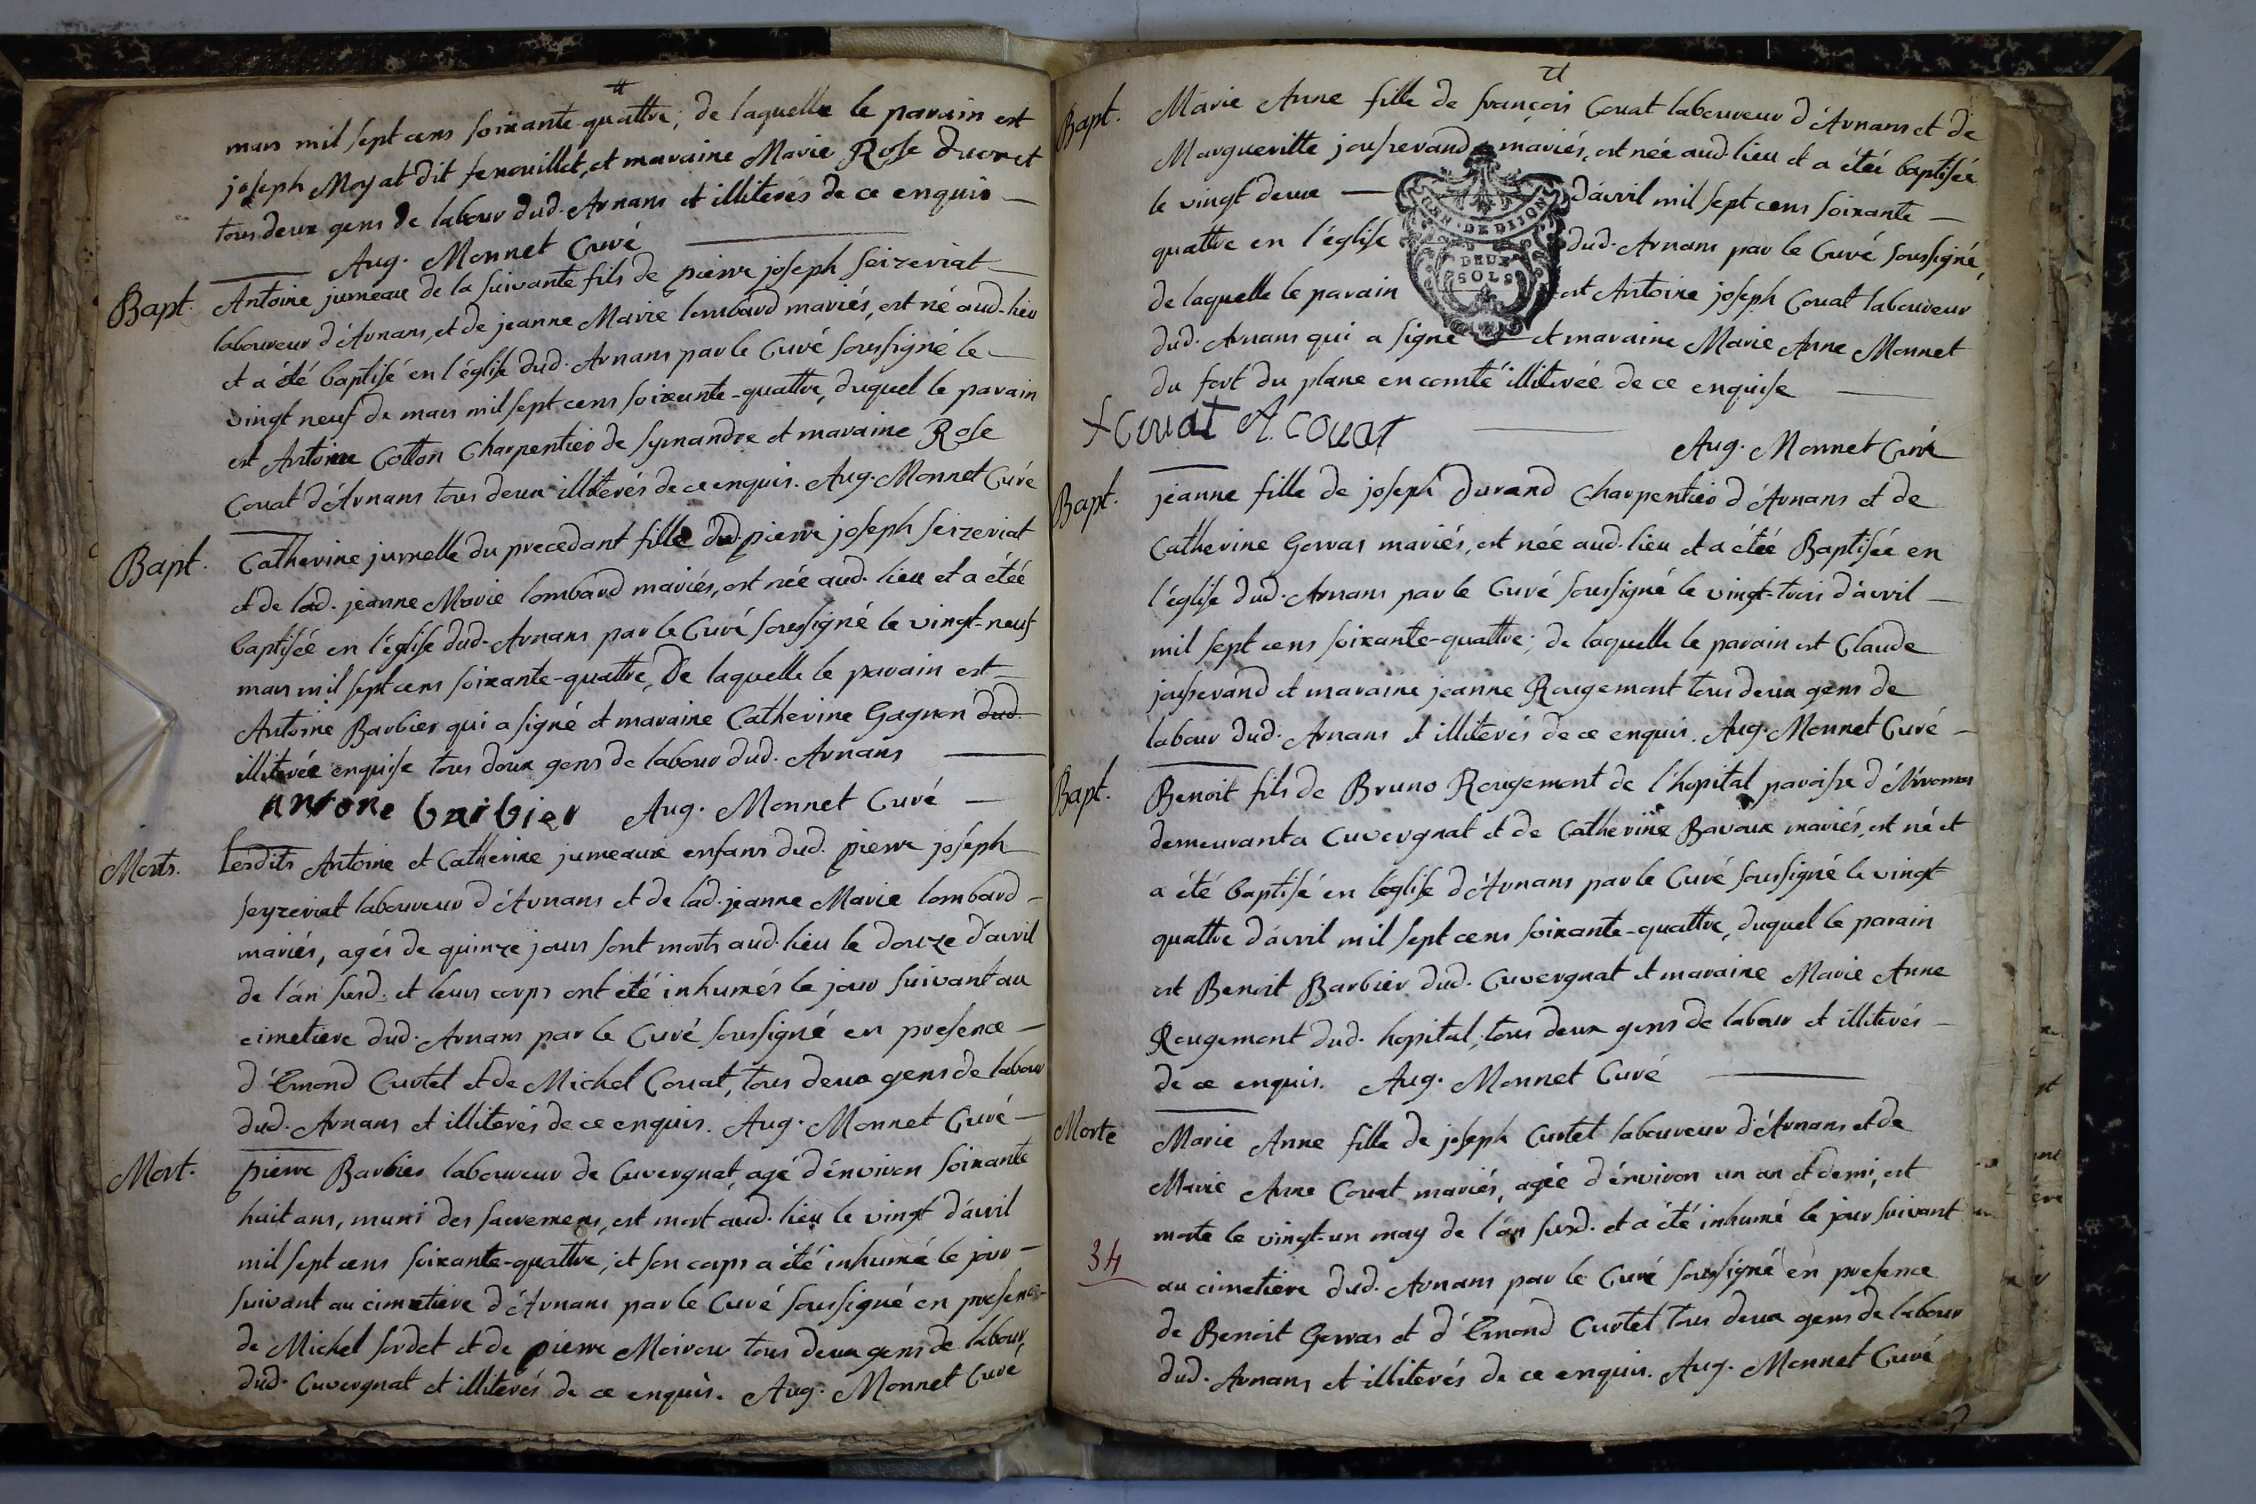 mars mil sept cens soixante-quattre; de laquelle le parain est
joseph Moyat dit fenouillet, et maraine Marie Rose Ducret
tous deux gens de labour dud. Arnans et illiterés de ce enquis
Aug. Monnet Curé
Bapt. Antoine jumeau de la suivante fils de pierre joseph Seizeriat
laboureur d'Arnans, et de jeanne Marie lombard mariés, est né aud. lieu
et a été baptisé en l'église dud. Arnans par le Curé soussigné le
vingt neuf de mars mil sept cens soixante-quattre, duquel le parain
est Antoine Cotton Charpentier de Symandre et maraine Rose
Couat d'Arnans tous deux illiterés de ce enquis. Aug. Monnet Curé
Bapt. Catherine jumelle du precedant fille dud. pierre joseph Seizeriat
et de lad. jeanne Marie lombard mariés, est née aud. lieu et a étéé
baptiséé en l'église dud. Arnans par le Curé soussigné le vingt-neuf
mars mil sept cens soixante-quattre, De laquelle le parain est
Antoine Barbier qui a signé et maraine Catherine Gagnon dud.
illiteréé enquise tous deux gens de labour dud. Arnans
antone barbier Aug. Monnet Curé
Morts. Lesdits Antoine et Catherine jumeaux enfans dud. pierre joseph
Seyzeriat laboureur d'Arnans et de lad. jeanne Marie lombard
mariés, agés de quinze jours sont morts aud. lieu le douze d'avril
de l'an susd. et leurs corps ont été inhumés le jour suivant au
cimetiere dud. Arnans par le Curé soussigné en presence
d'Emond Curtet et de Michel Couat, tous deux gens de labour
dud. Arnans et illiterés de ce enquis. Aug. Monnet Curé
Mort. pierre Barbier laboureur de Cuvergnat, agé d'environ soixante
huit ans, muni des sacremens, est mort aud. lieu le vingt d'avril
mil sept cens soixante-quattre; et son corps a été inhumé le jour
suivant au cimetiere d'Arnans par le Curé soussigné en presence
de Michel Sordet et de pierre Moirou tous deux gens de labour
dud. Cuvergnat et illiterés de ce enquis. Aug. Monnet Curé
Bapt. Marie Anne fille de françois Couat laboureur d'Arnans et de
Margueritte jousserand mariés, est née aud. lieu et a étéé baptiséé
le vingt deux d'avril mil sept cens soixante
quattre en l'église dud. Arnans par le Curé soussigné,
GEN. DE DIJON
DEUX
SOLS
de laquelle le parain est Antoine joseph Couat laboureur
dud. Arnans qui a signé et maraine Marie Anne Monnet
du fort du plane en comté illiteréé de ce enquise
f couat A. couat
Aug. Monnet Curé
Bapt. jeanne fille de joseph Durand Charpentier d'Arnans et de
Catherine Gervas mariés, est née aud. lieu et a étéé Baptiséé en
l'église dud. Arnans par le Curé soussigné le vingt-trois d'avril
mil sept cens soixante-quattre; de laquelle le parain est Claude
jousserand et maraine jeanne Rougemont tous deux gens de
labour dud. Arnans et illiterés de ce enquis. Aug. Monnet Curé
Bapt. Benoit fils de Bruno Rougemont de l'hopital paroisse
demeurant a Cuvergnat et de Catherine Bavoux mariés, est né et
a été baptisé en l'église d'Arnans par le Curé soussigné le vingt
quattre d'avril mil sept cens soixante-quattre, duquel le parain
est Benoit Barbier dud. Cuvergnat et maraine Marie Anne
Rougemont dud. hopital, tous deux gens de labour et illiterés
de ce enquis. Aug. Monnet Curé
Morte Marie Anne fille de joseph Curtet laboureur d'Arnans et de
Marie Anne Couat mariés, agéé d'environ un an et demi, est
morte le vingt-un may de l'an susd. et a été inhumé le jour suivant
34
au cimetiere dud. Arnans par le Curé soussigné en presence
de Benoit Gervas et d'Emond Curtet tous deux gens de labour
dud. Arnans et illiterés de ce enquis. Aug. Monnet Curé